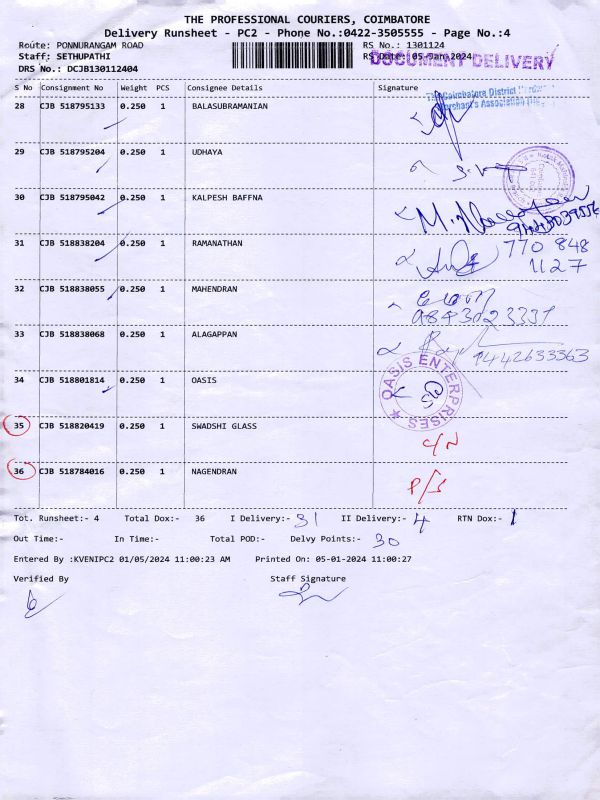 THE PROFESSIONAL COURIERS, COIMBATORE
Delivery Runsheet - PC2 - Phone No.:0422-3505555 - Page No.:4
Route: PONNURANGAM ROAD RS No.: 1301124
Staff: SETHUPATHI RS Date: 05-Jan-2024
DOCUMENT DELIVERY
DRS No.: DCJB130112404
S No Consignment No Weight PCS Consignee Details Signature
The Coimbatore District
Merchant's Association
28 CJB 518795133 0.250 1 BALASUBRAMANIAN
29 CJB 518795204 0.250 1 UDHAYA
30 CJB 518795042 0.250 1 KALPESH BAFFNA
31 CJB 518838204 0.250 1 RAMANATHAN
770 848
1127
32 CJB 518838055 0.250 1 MAHENDRAN
9843023331
33 CJB 518838068 0.250 1 ALAGAPPAN
9442633363
34 CJB 518801814 0.250 1 OASIS
OASIS ENTERPRISES
35 CJB 518820419 0.250 1 SWADSHI GLASS
C/N
36 CJB 518784016 0.250 1 NAGENDRAN
P/S
Tot. Runsheet:- 4 Total Dox:- 36 I Delivery:- 31 II Delivery:- 4 RTN Dox:- 1
Out Time:- In Time:- Total POD:- Delvy Points:- 30
Entered By :KVENIPC2 01/05/2024 11:00:23 AM Printed On: 05-01-2024 11:00:27
Verified By Staff Signature